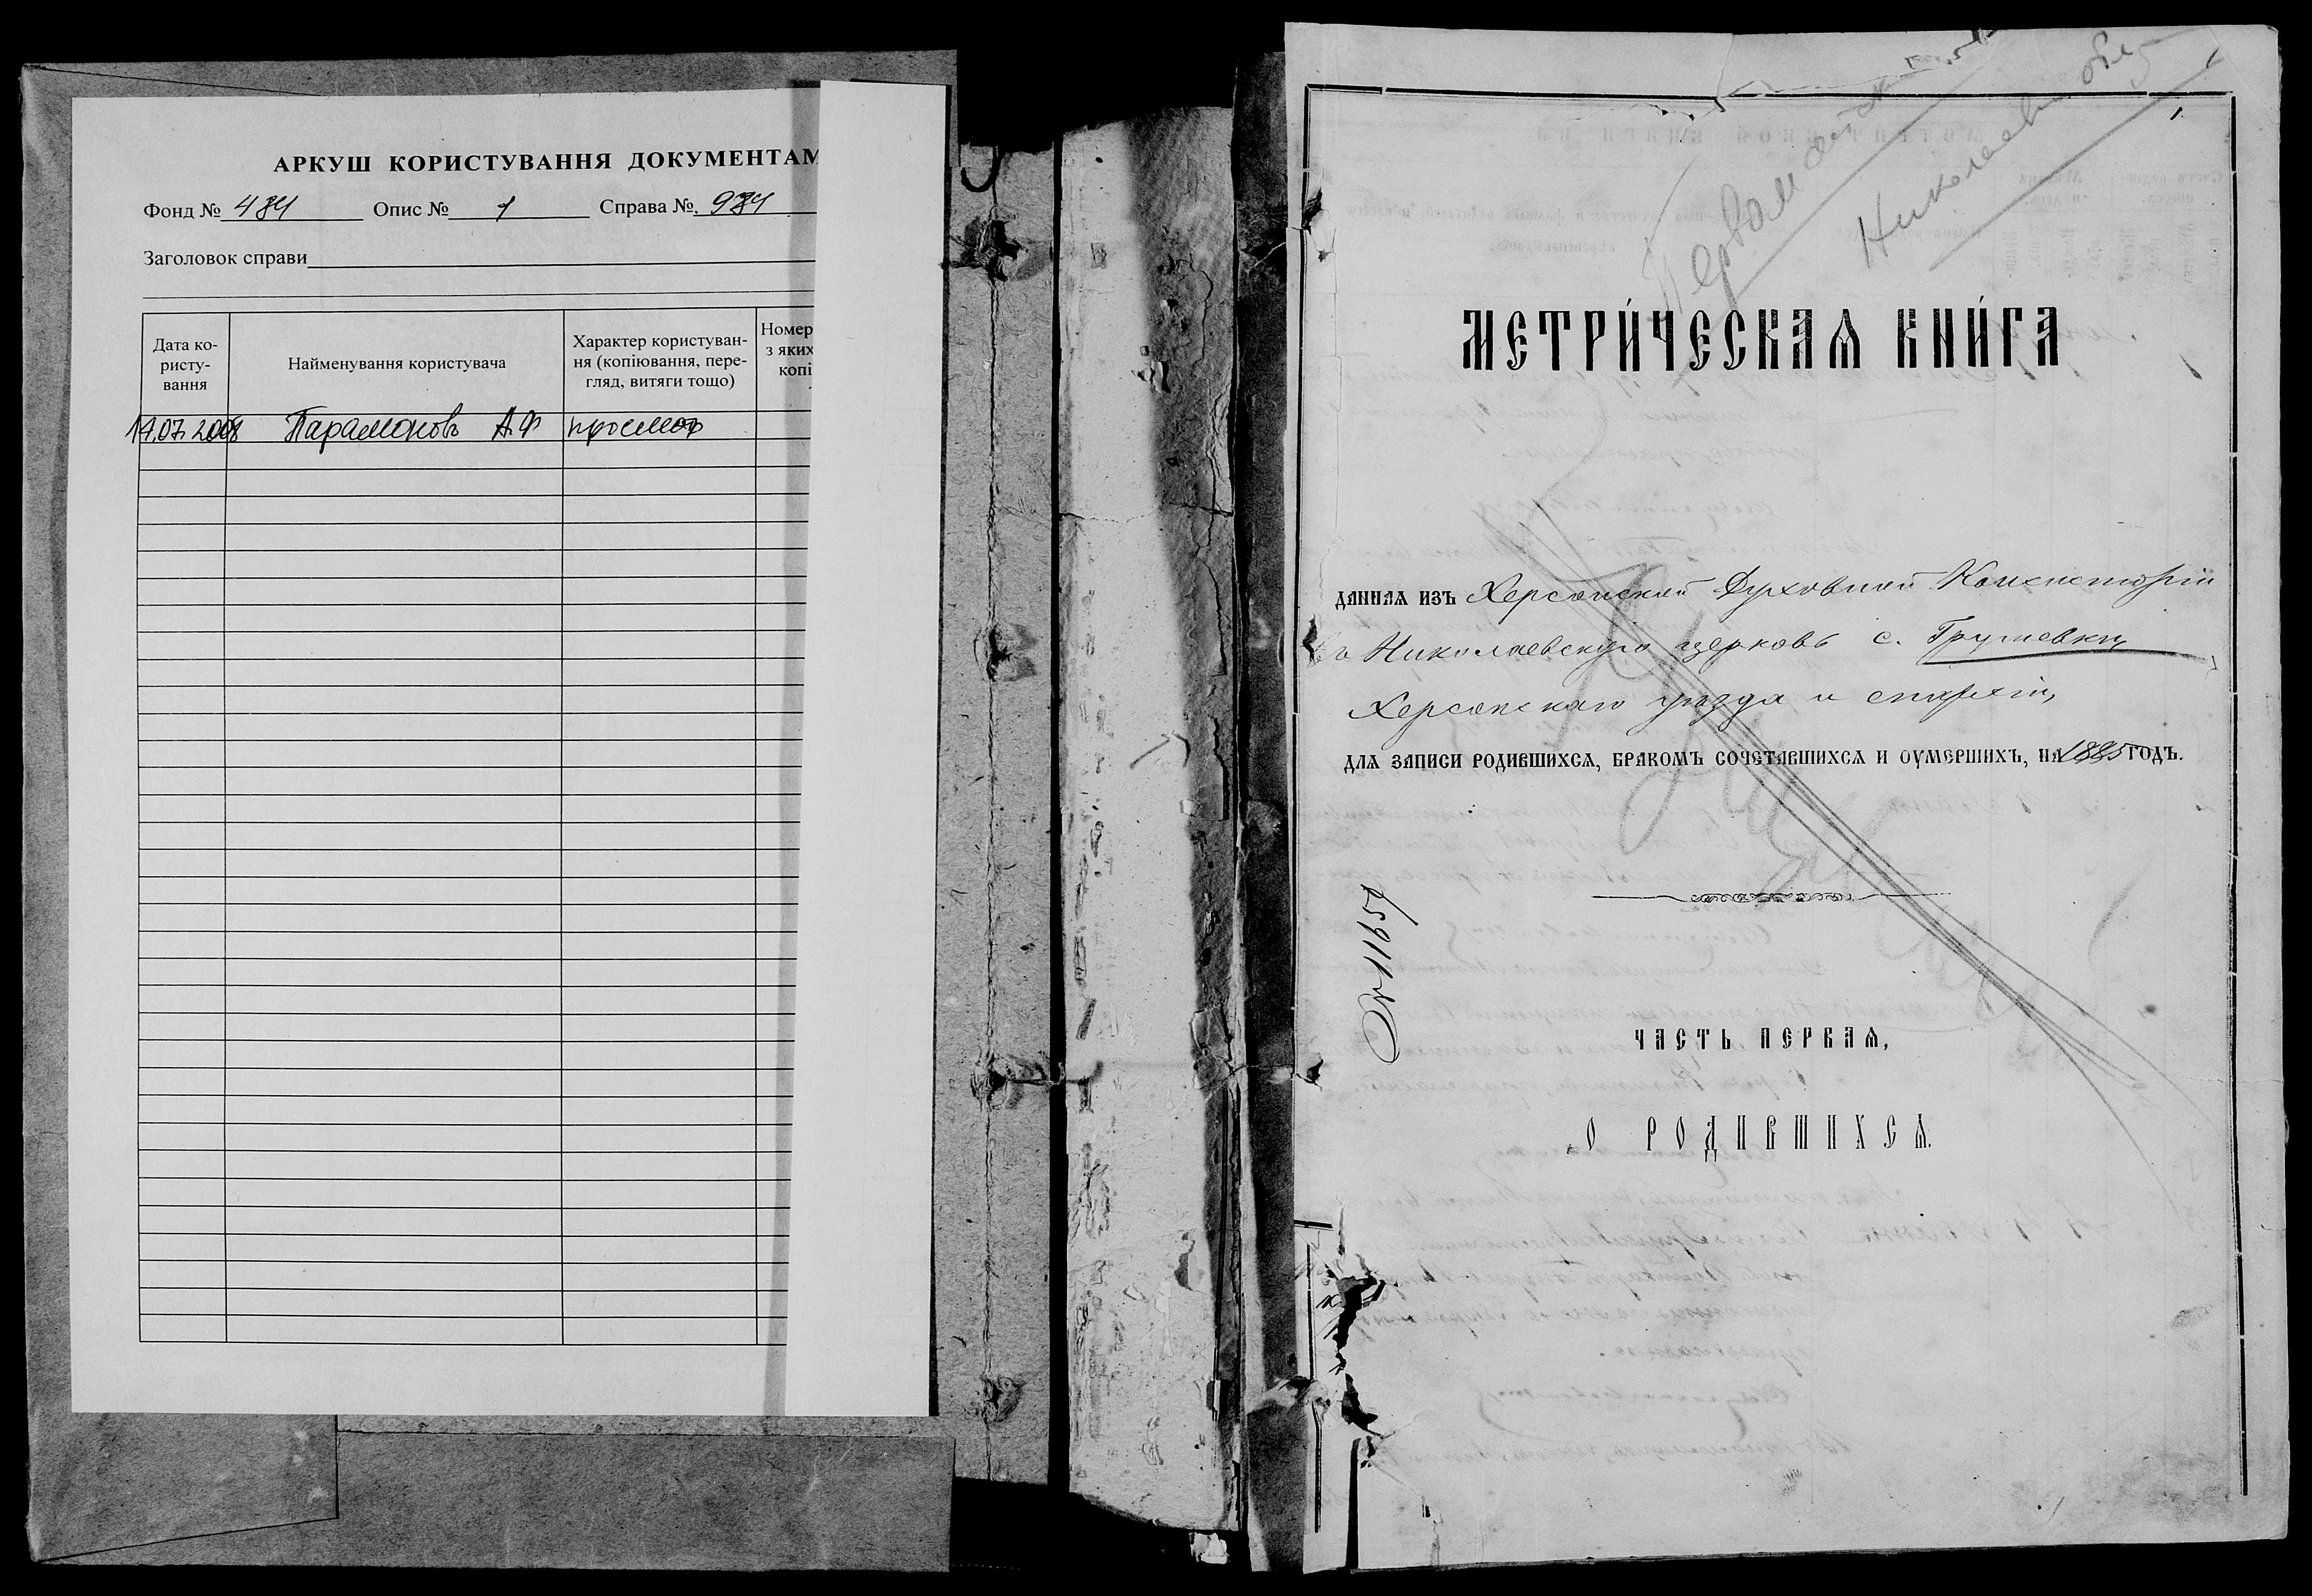 АРКУШ КОРИСТУВАННЯ ДОКУМЕНТАМ
Фонд № 484 Опис № 1 Справа № 984
Заголовок справи
Дата ко-
ристу-
вання
Найменування користувача
Характер користуван-
ня (копіювання, пере-
гляд, витяги тощо)
Номер
з яких
копі
14.07.2008 Парамоновъ А.Ф просмотр
Первомайск
Николаевск обл
1
МЕТРИ́ЧЕСКАѦ КНИ́ГА
ДАННАѦ ИЗЪ Херсонской Духовной Консисторіи
въ Николаевскую церковь с. Грушевки,
Херсонскаго уѣзда и епархіи,
ДЛѦ ЗАПИСИ РОДИВШИХСѦ, БРАКОМЪ СОЧЕТАВШИХСѦ И ОУМЕРШИХЪ, НА 1885 ГОДЪ.
№ 11659
ЧАСТЬ ПЕРВАѦ,
О РОДИВШИХСѦ.